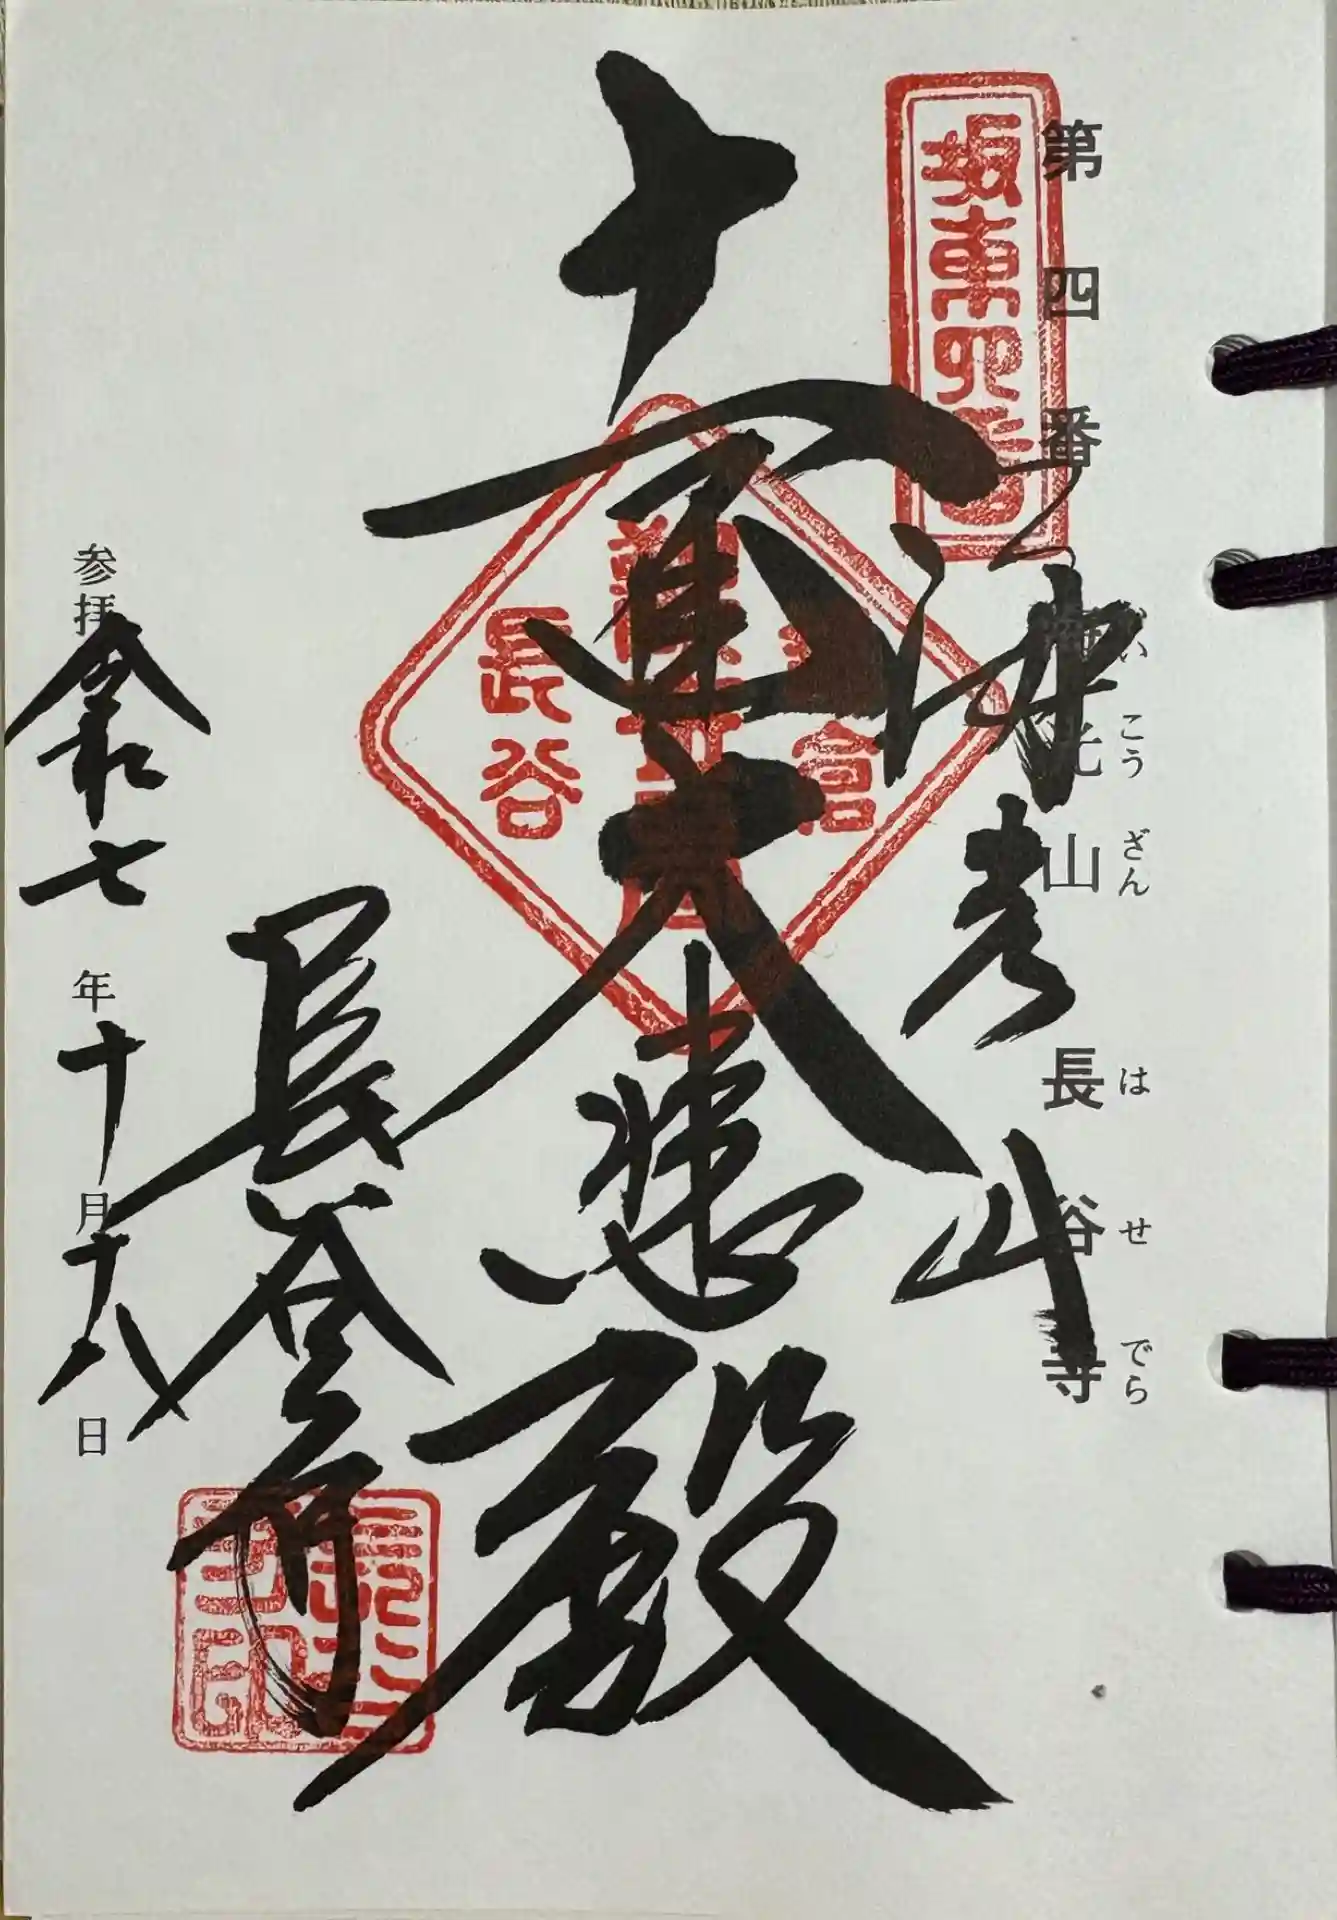 坂東四番
第四番 海光山 長谷寺
かいこうざん はせでら
海光山
十一面大悲殿
鎌倉
長谷
長谷寺
参拝 令和七年十月十八日